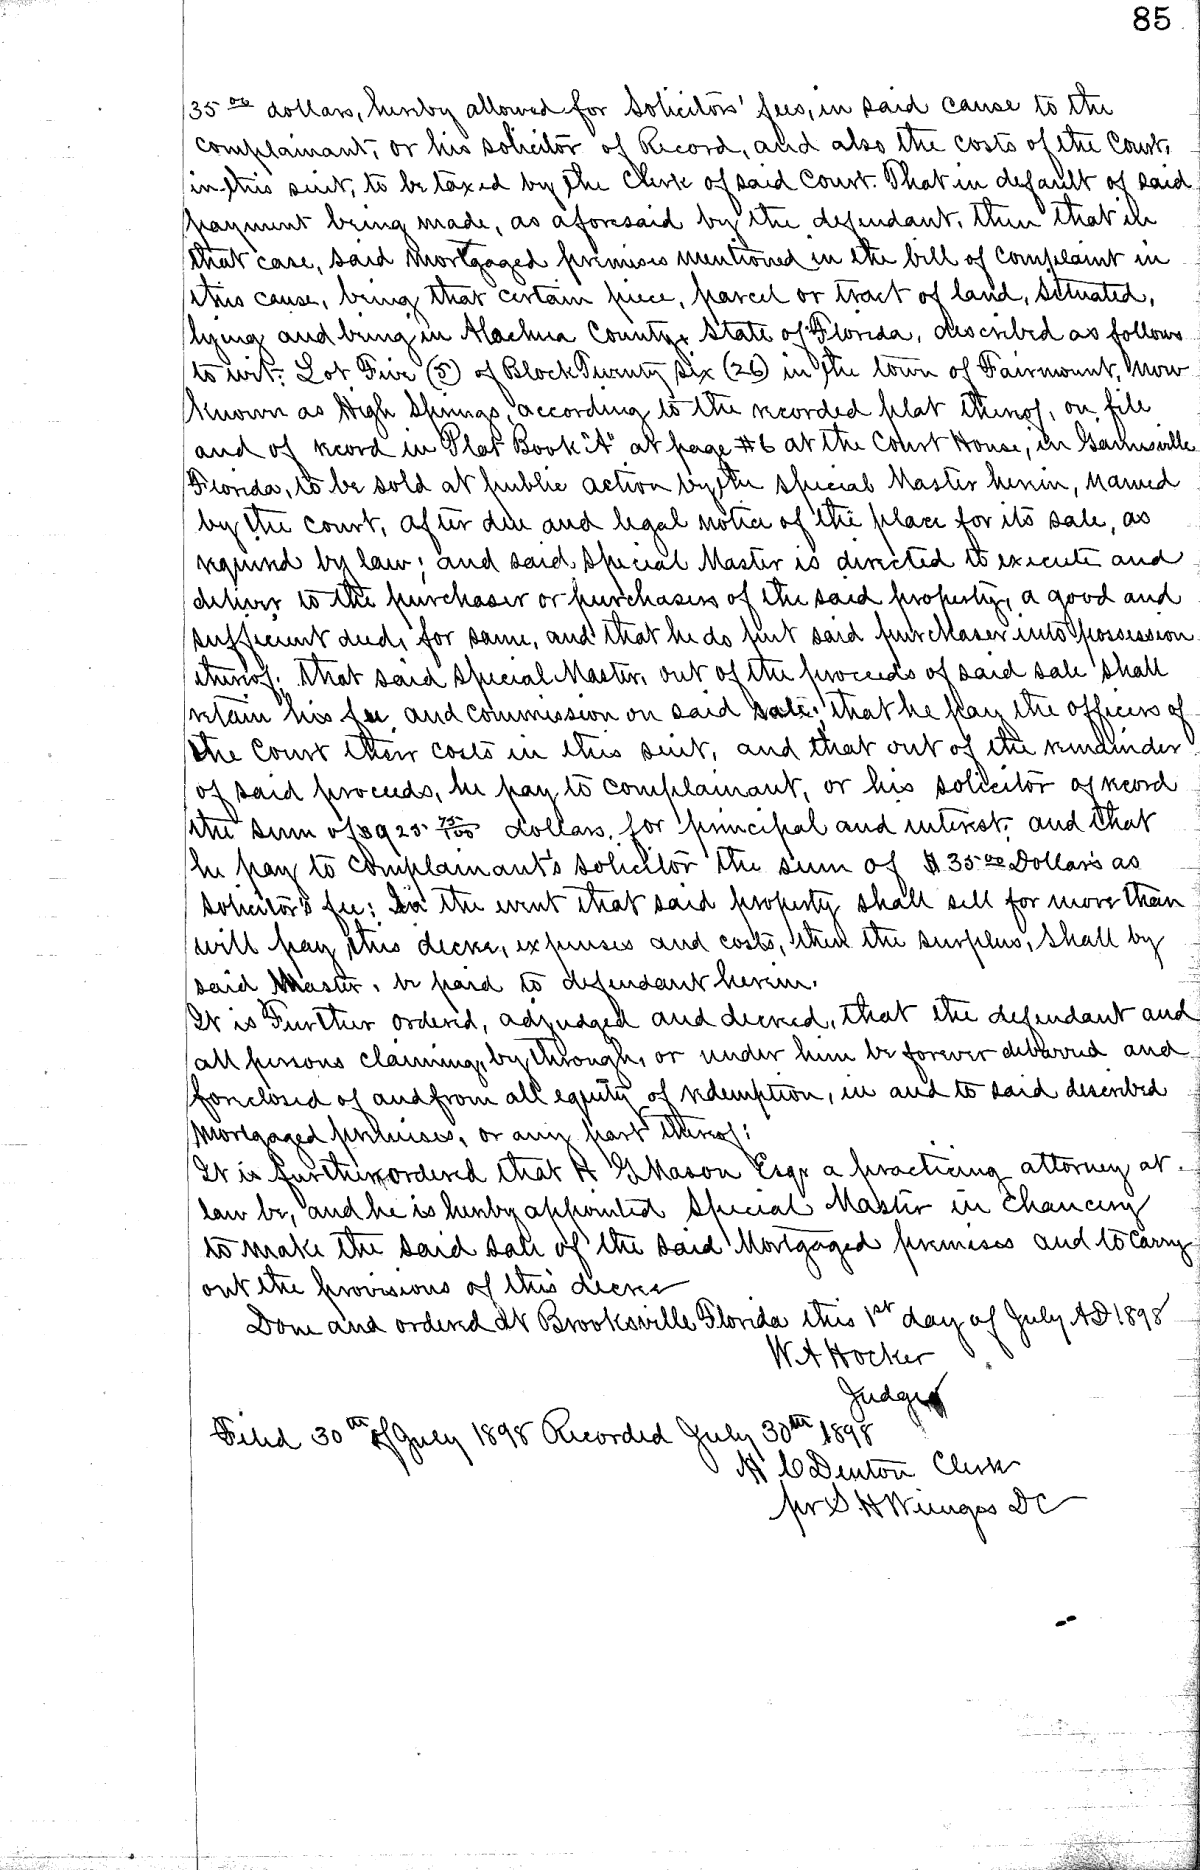 85
35 00 dollars, hereby allowed for Solicitors' fees, in said cause to the
complainant, or his solicitor of Record, and also the costs of the Court,
in this suit, to be taxed by the Clerk of said Court. That in default of said
payment being made, as aforesaid by the defendant, then that in
that case, said mortgaged premises mentioned in the bill of complaint in
this cause, being that certain piece, parcel or tract of land, situated,
lying and being in Alachua County, State of Florida, described as follows
to wit: Lot Five (5) of Block Twenty Six (26) in the town of Fairmount, now
known as High Springs, according to the recorded plat thereof, on file
and of record in Plat Book "A" at page #6 at the Court House, in Gainesville
Florida, to be sold at public action by the Special Master herein, named
by the court, after due and legal notice of the place for its sale, as
required by law; and said Special Master is directed to execute and
deliver to the purchaser or purchasers of the said property, a good and
sufficient deed, for same, and that he do put said purchaser into possession
thereof; that said Special Master, out of the proceeds of said sale shall
retain his fee, and commission on said sale; that he pay the officers of
the Court their costs in this suit, and that out of the remainder
of said proceeds, he pay to complainant, or his solicitor of record
the sum of $925 75/100 dollars, for principal and interest, and that
he pay to Complainant's solicitor the sum of $35 00 Dollars as
Solicitor's fee; In the event that said property shall sell for more than
will pay this decree, expenses and costs, then the surplus, shall by
said Master, be paid to defendant herein.
It is Further ordered, adjudged and decreed, that the defendant and
all persons claiming, by through, or under him be forever debarred and
foreclosed of and from all equity of redemption, in and to said described
Mortgaged premises, or any part thereof;
It is further ordered that H G Mason Esqr a practicing attorney at
law be, and he is hereby appointed Special Master in Chancery
to make the said sale of the said Mortgaged premises and to carry
out the provisions of this decree
Done and ordered at Brooksville Florida this 1st day of July AD 1898
W A Hocker
Judge
Filed 30th of July 1898 Recorded July 30th 1898
H C Denton Clerk
per S. H Wienges DC